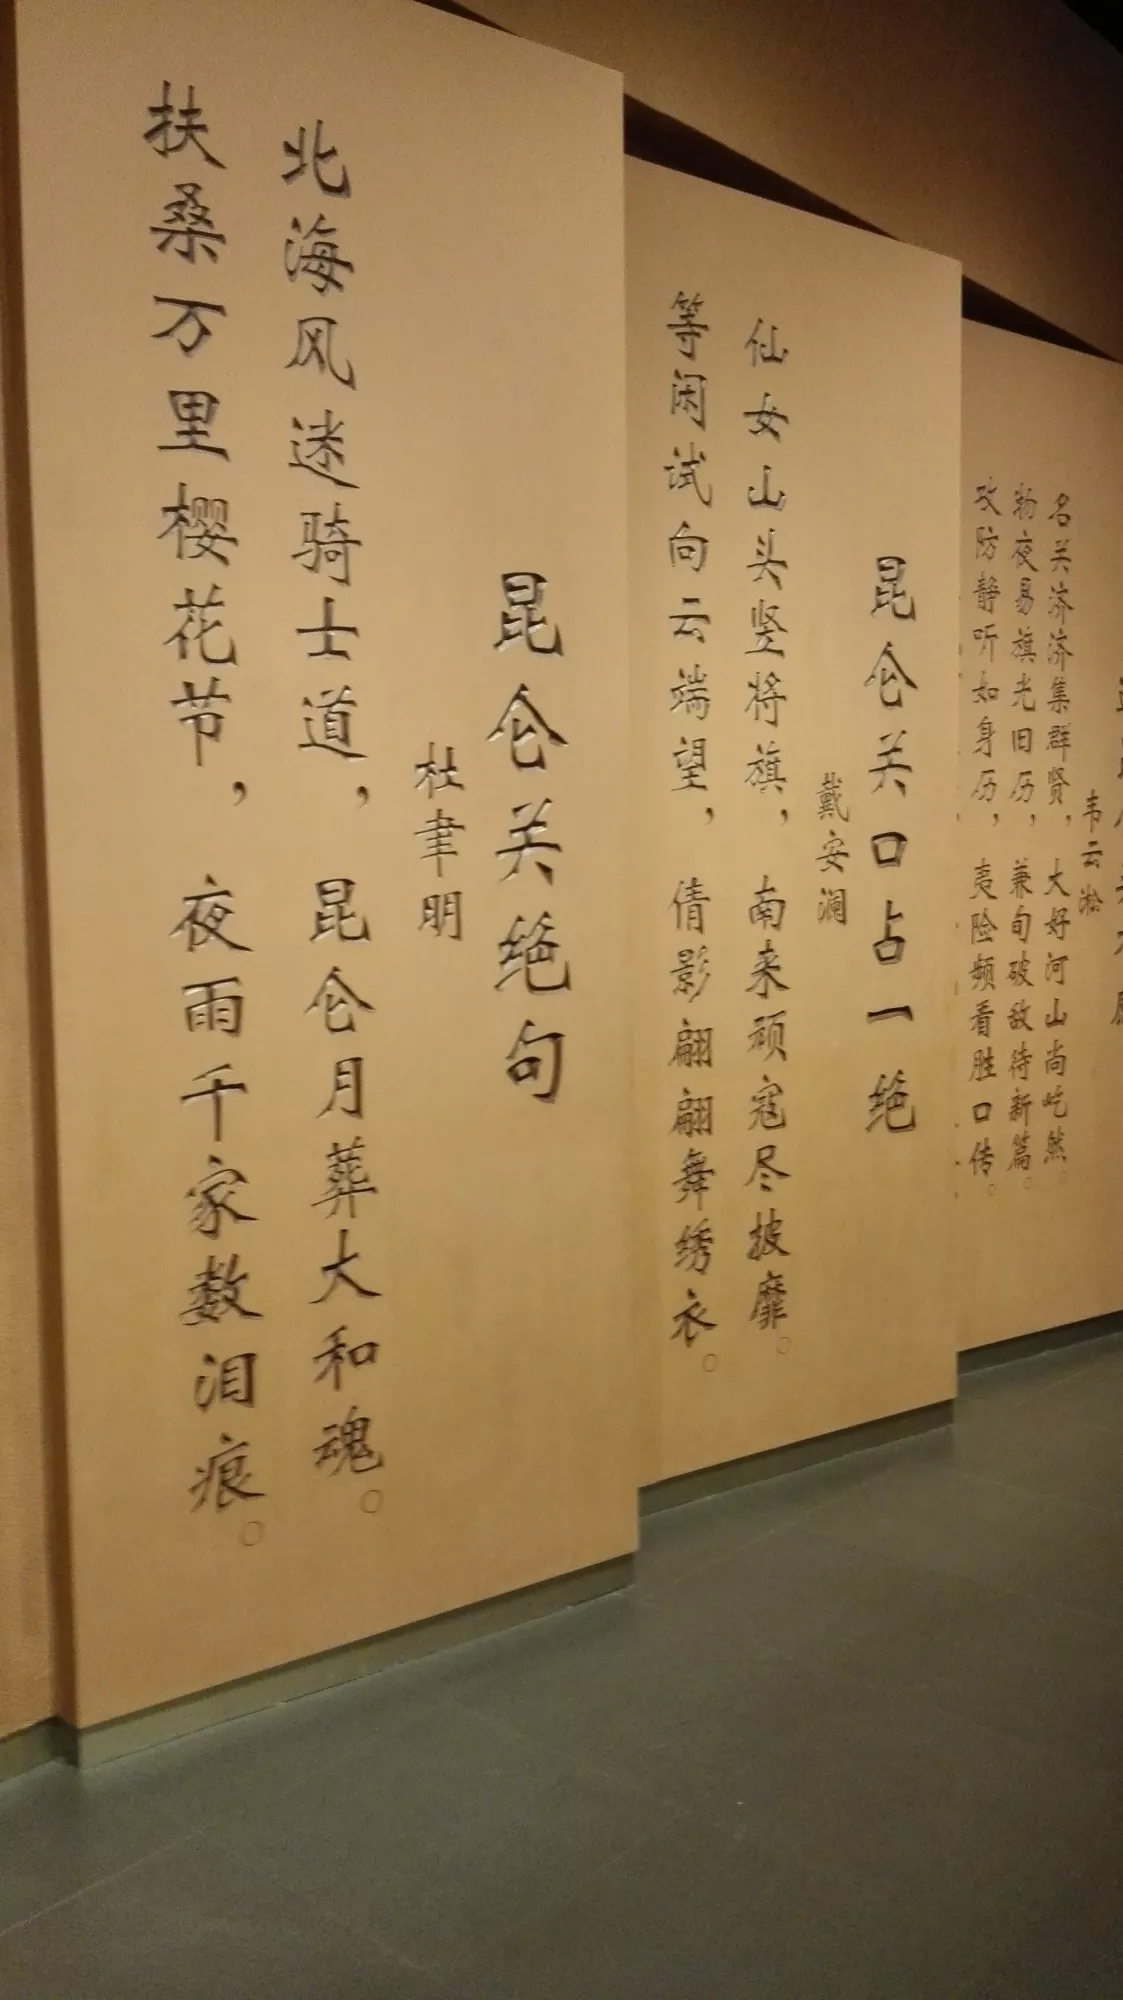 昆仑关绝句
杜聿明
北海风迷骑士道，昆仑月葬大和魂。
扶桑万里樱花节，夜雨千家数泪痕。
昆仑关口占一绝
戴安澜
仙女山头竖将旗，南来顽寇尽披靡。
等闲试向云端望，倩影翩翩舞绣衣。
韦云淞
名关济济集群贤，大好河山尚屹然。
夜易旗光旧历，兼旬破敌待新篇。
攻防静听如身历，夷险频看胜口传。